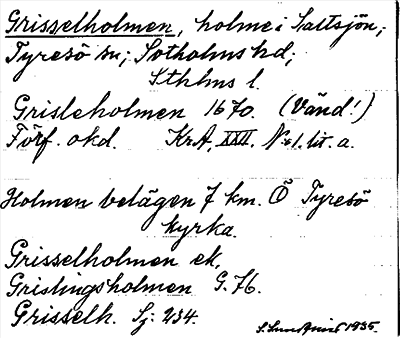 Grisselholmen, holme i Saltsjön;
Tyresö sn; Sotholms hd;
Sthlms l.
Grisleholmen 1670. (Vänd!)
Förf. okd. KrA, XXII. N:o 1. lit. a.
Holmen belägen 7 km. Ö Tyresö
kyrka.
Grisselholmen ek,
Grislingsholmen G. 76.
Grisselh. Sj: 234.
1935.